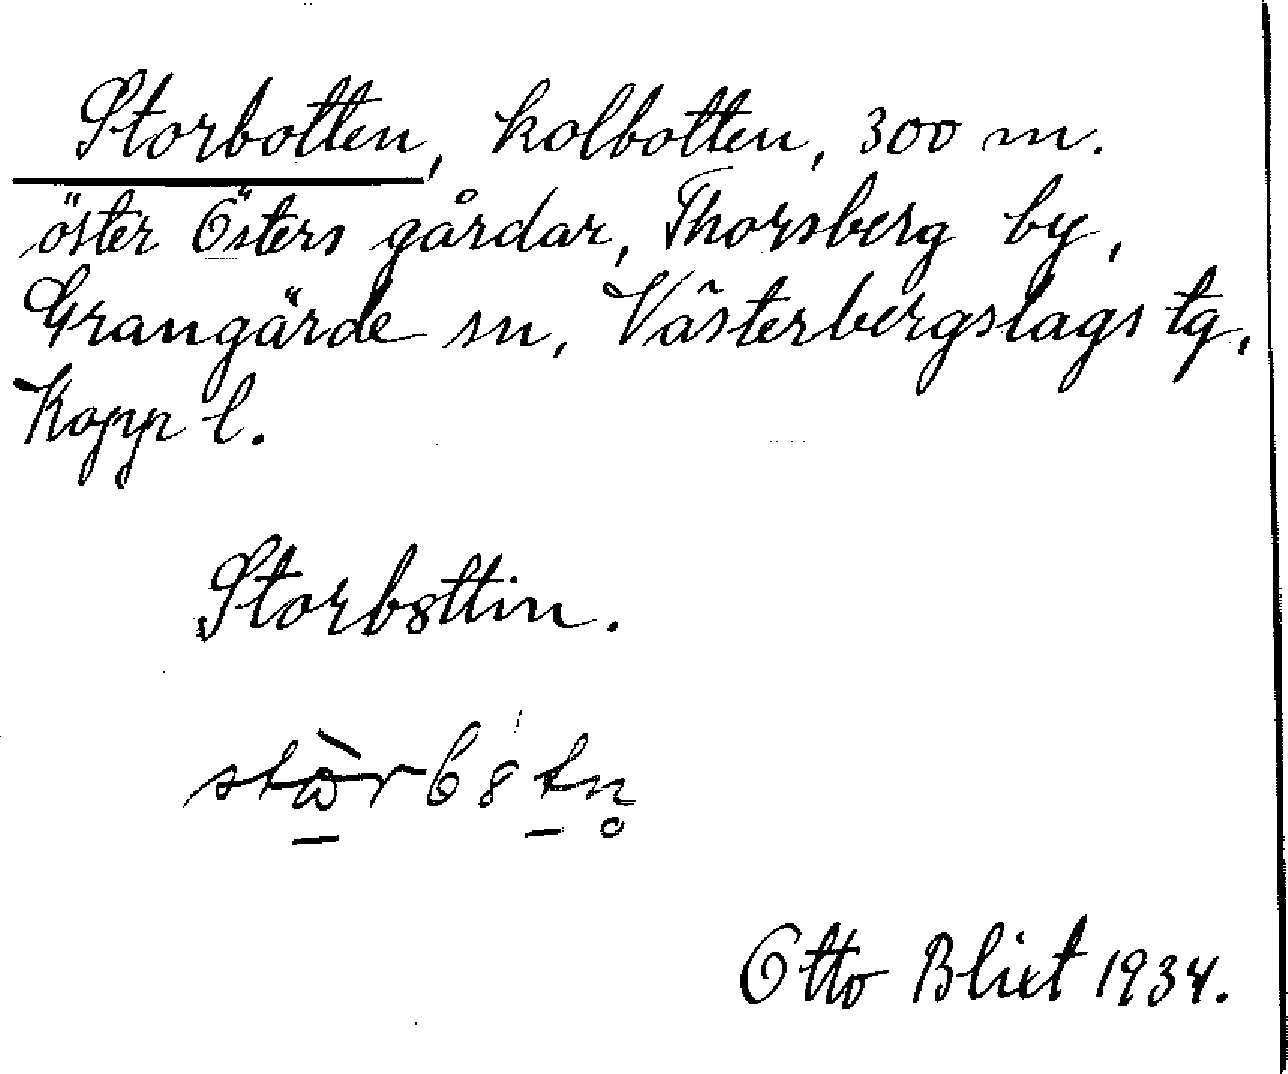 Storbotten, kolbotten, 300 m.
öster Östers gårdar, Thorsberg by,
Grangärde sn, Västerbergslags tg,
Kopp l.
Storb8ttin.
Otto Blixt 1934.